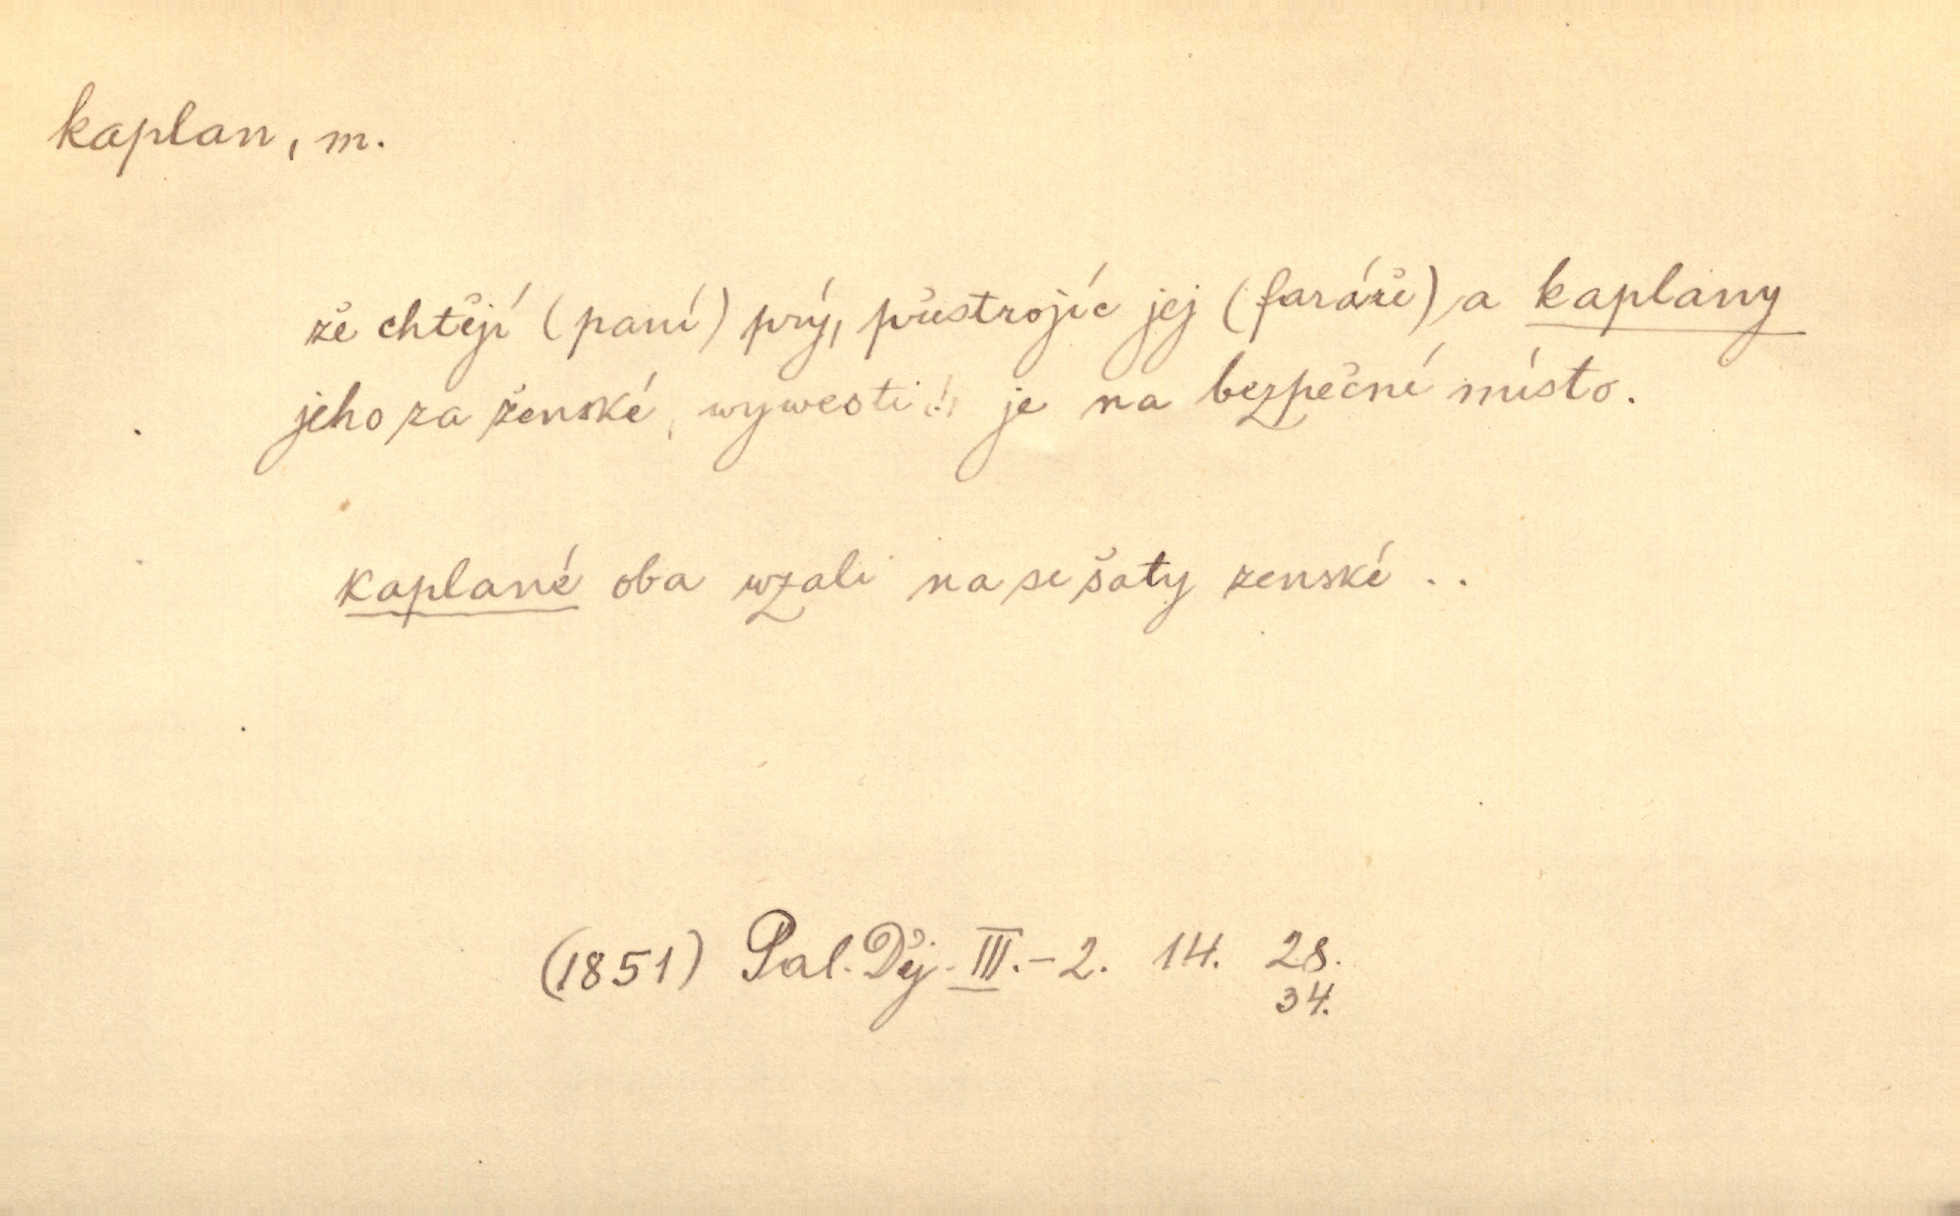 kaplan, m.
že chtějí (paní) prý, přestrojíc jej (faráře) a kaplany
jeho za ženské, wywesti je na bezpečné místo.
kaplané oba wzali na se šaty zenské ..
(1851) Pal. Děj. III.-2. 14. 28.
34.